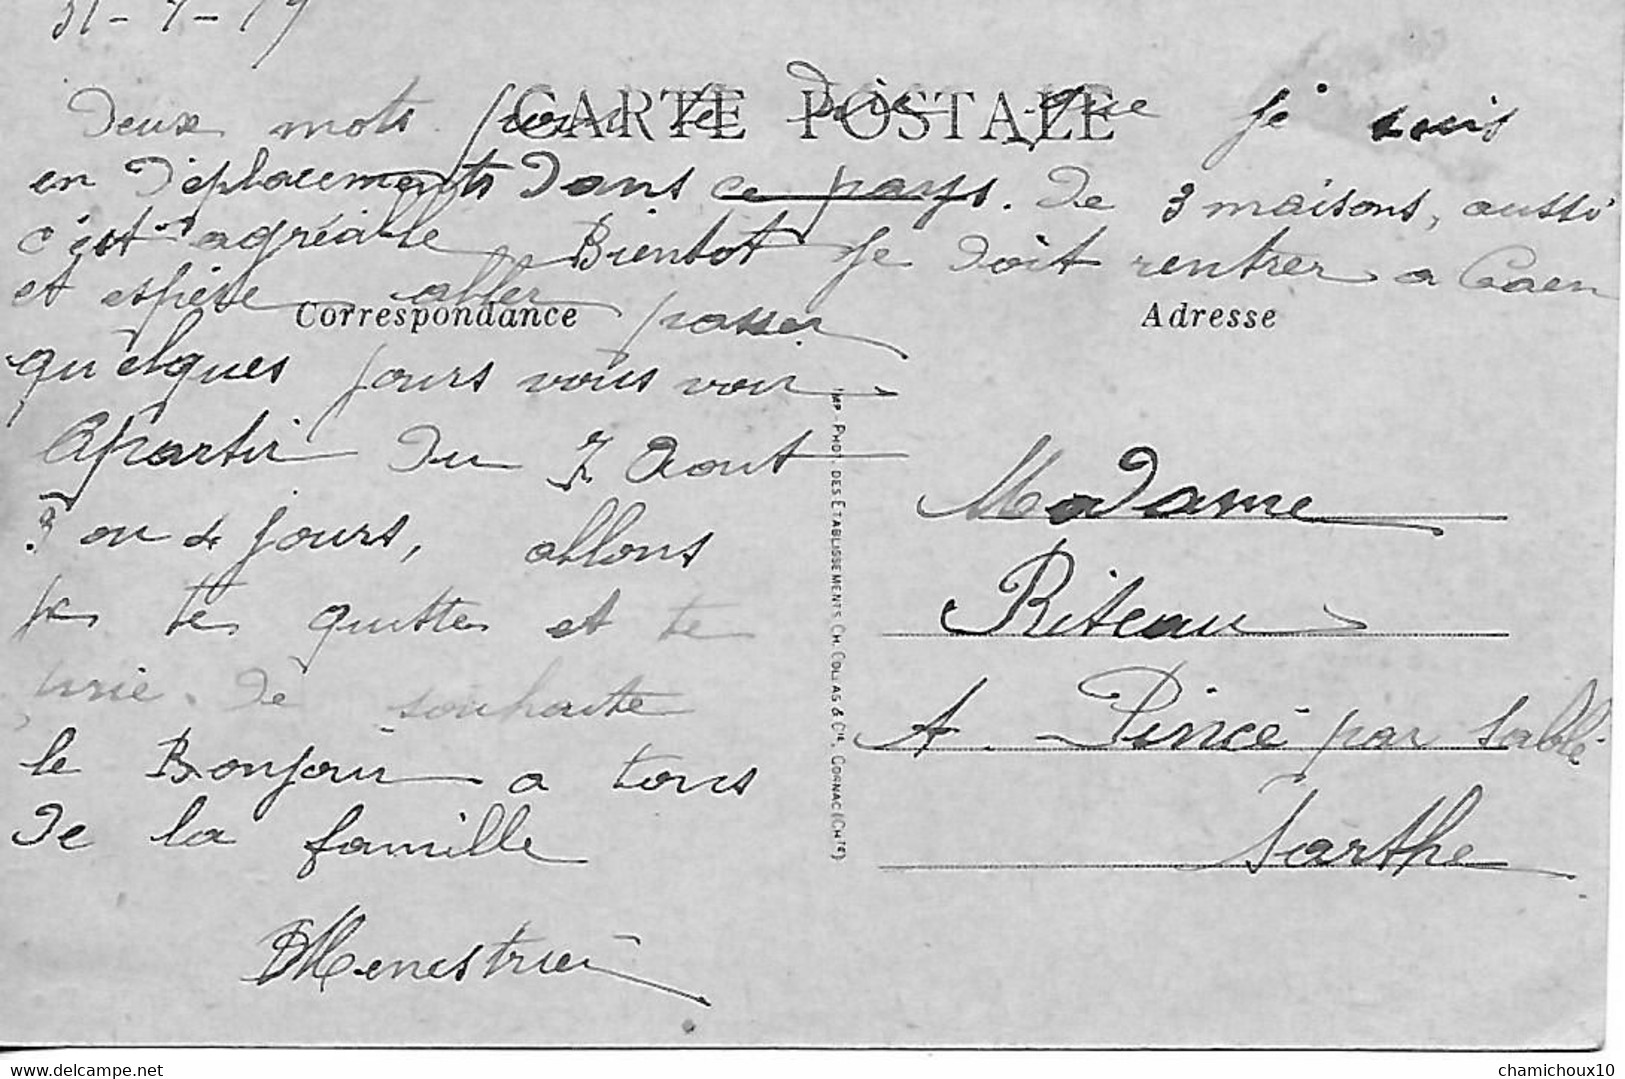 31-7-19
CARTE POSTALE
Deux mots pour te dire que je suis
en déplacements dans ce pays. de 3 maisons, aussi
c'est agréable Bientot je doit rentrer a Caen
et espère aller passer
Correspondance
Adresse
quelques jours vous voir
Apartir du 7 Aout
3 ou 4 jours, allons
je te quitte et te
prie de souhaite
le Bonjour a tous
de la famille
Menestrier
Madame
Riteau
A. Pincé par Sablé
Sarthe
IMP-PHOT. DES ETABLISSEMENTS CH. COLLAS & Cie, CORNAC (Chte)
delcampe.net
chamichoux10